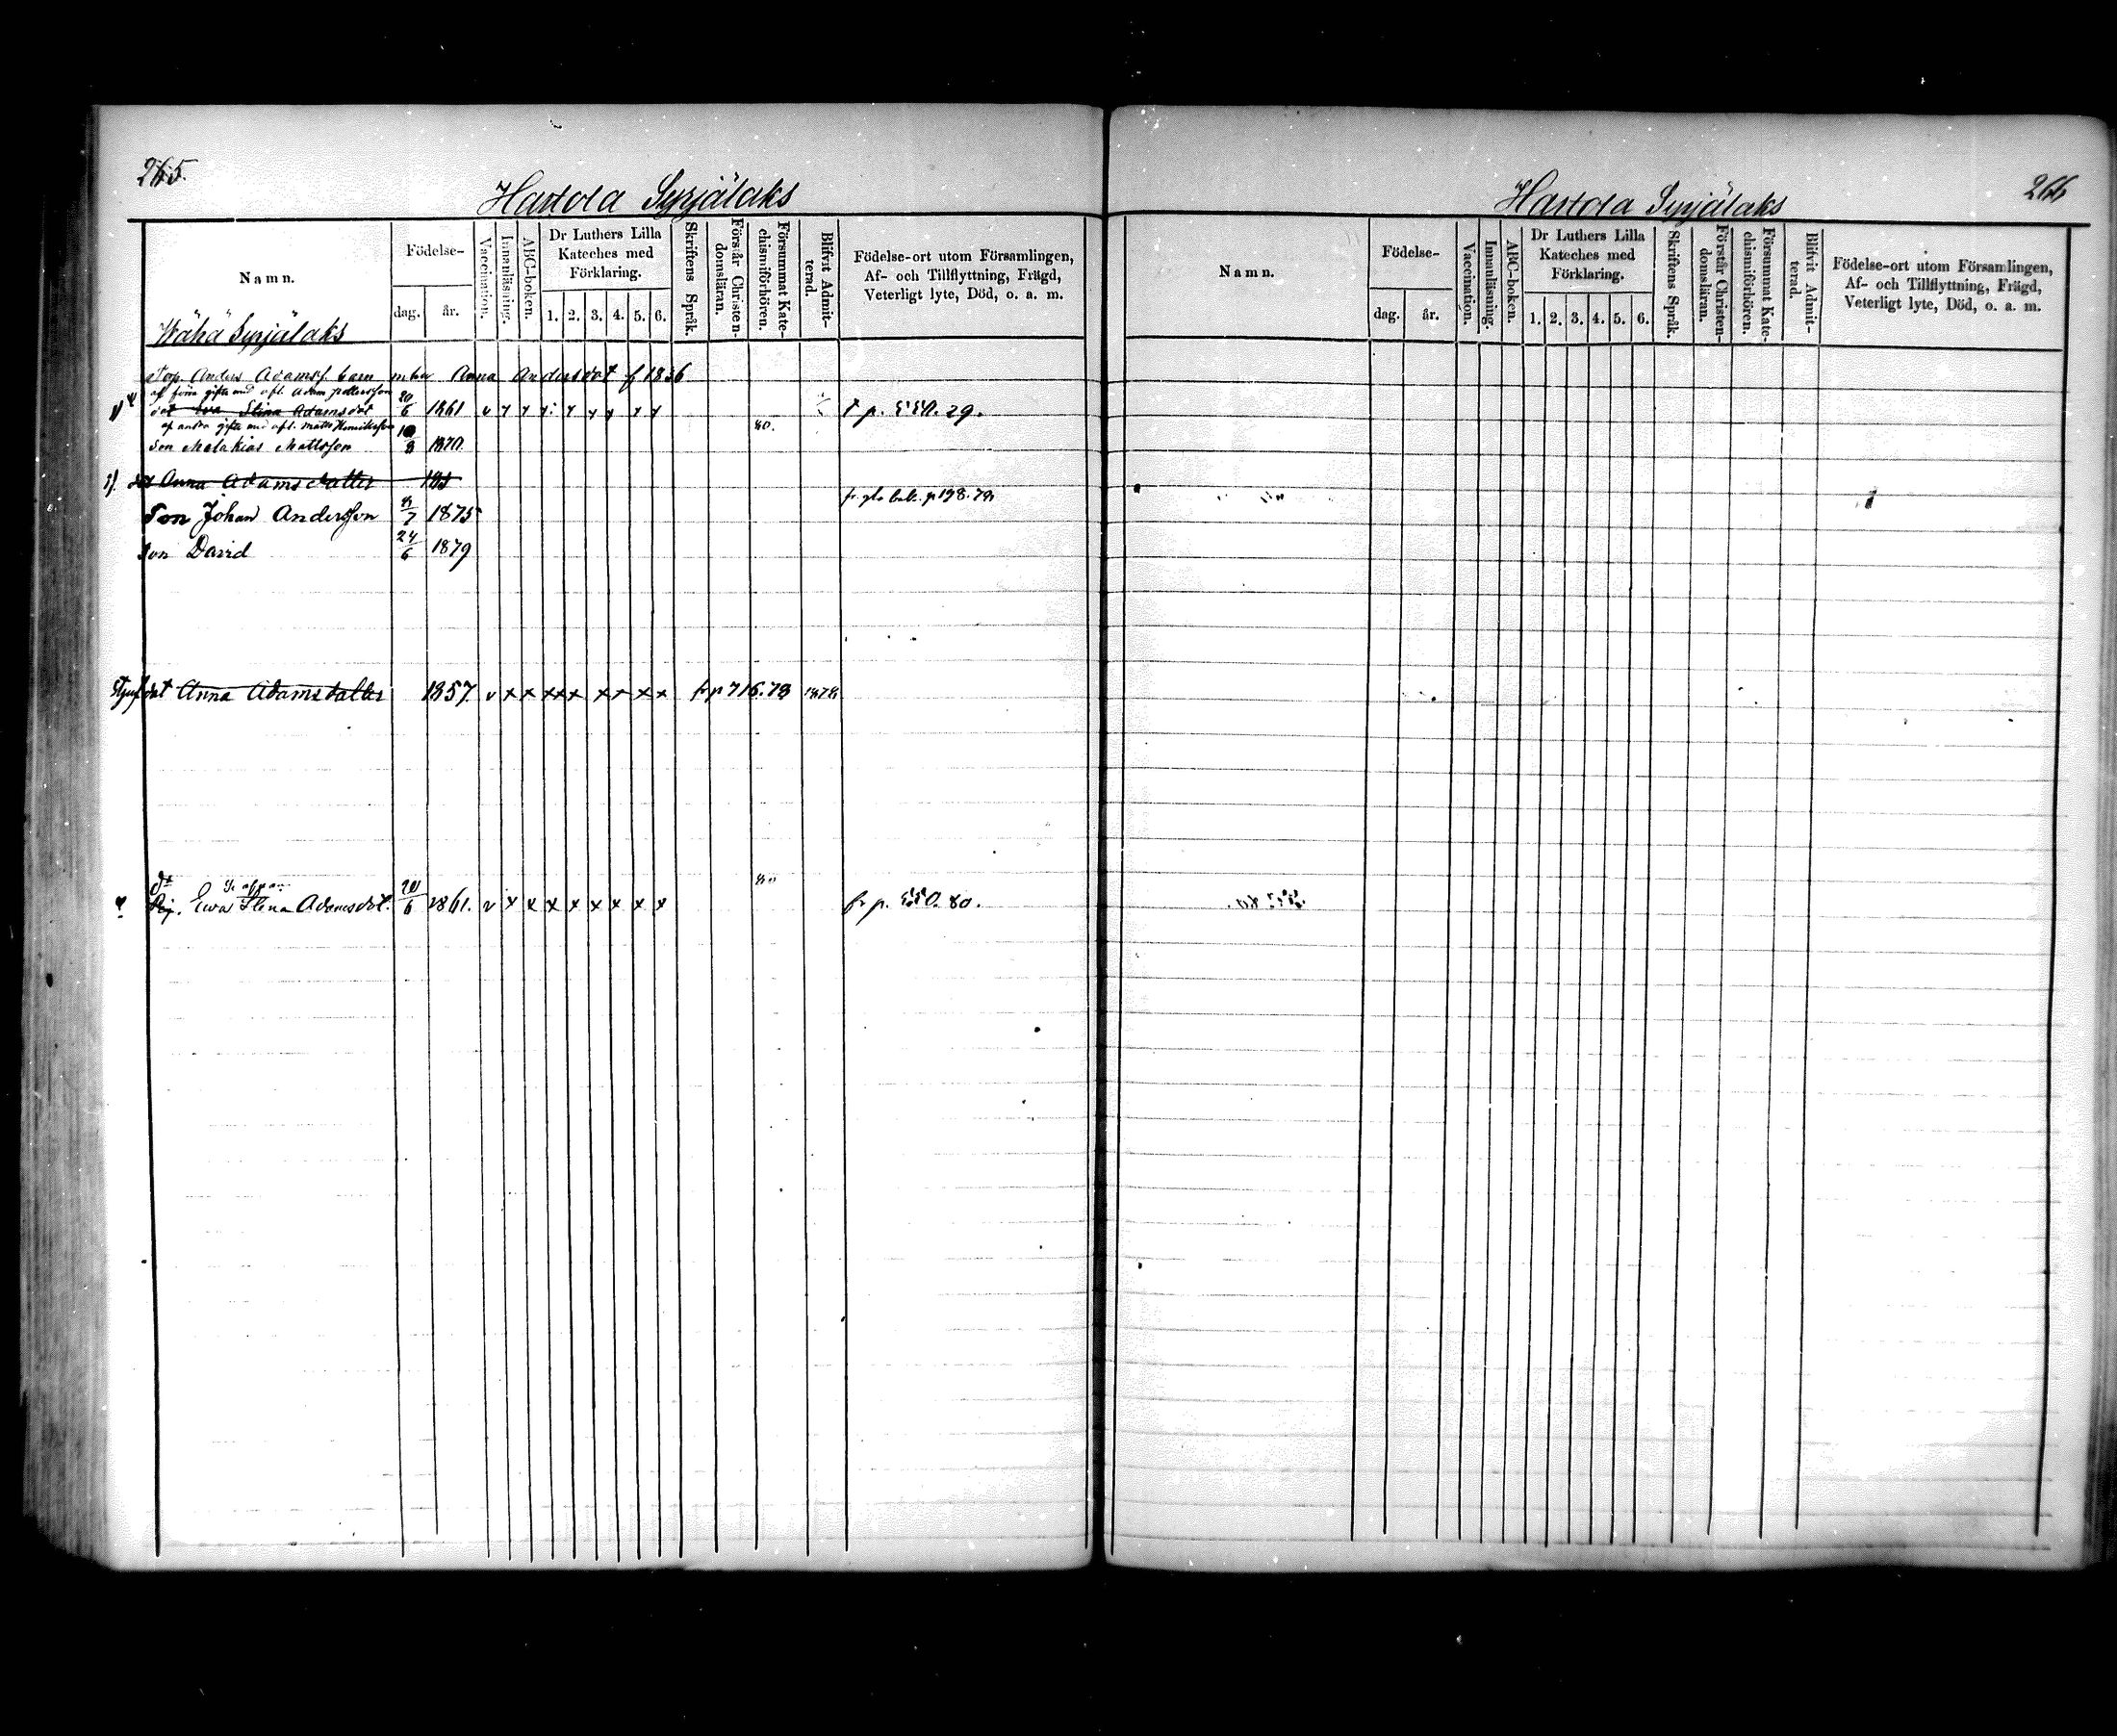 265.
Hartola Syrjälaks
Namn.
Födelse-
dag. år.
Vaccination.
Innanläsning.
ABC-boken.
Dr Luthers Lilla
Kateches med
Förklaring.
1. 2. 3. 4. 5. 6.
Skriftens Språk.
Förstår Christen-
domsläran.
Försummat Kate-
chismiförhören.
Blifvit Admit-
terad.
Födelse-ort utom Församlingen,
Af- och Tillflyttning, Frägd,
Veterligt lyte, Död, o. a. m.
Wähä Syrjälaks
Anders Adamss. barn m hu Anna Andersdot f 1836
af förra gifte med afl. Adam Pettersson
dot Eva Stina Adamsdot 20/6 1861 v
af andra gifte med afl. Matts Henriksson 80.
Son Malakias Mattsson 1870.
dot Anna Adamsdotter
Son Johan Andersson 8/7 1875
Son David 24/6 1879
Styfdot Anna Adamsdotter 1857. v x x x x x x x x x fr p 716.78 1878
80
Pig. Ewa Stina Adamsdot. 20/6 1861. v x x x x x x x x fr p. 80.
266
Hartola Syrjälaks
Namn.
Födelse-
dag. år.
Vaccination.
Innanläsning.
ABC-boken.
Dr Luthers Lilla
Kateches med
Förklaring.
1. 2. 3. 4. 5. 6.
Skriftens Språk.
Förstår Christen-
domsläran.
Försummat Kate-
chismiförhören.
Blifvit Admit-
terad.
Födelse-ort utom Församlingen,
Af- och Tillflyttning, Frägd,
Veterligt lyte, Död, o. a. m.